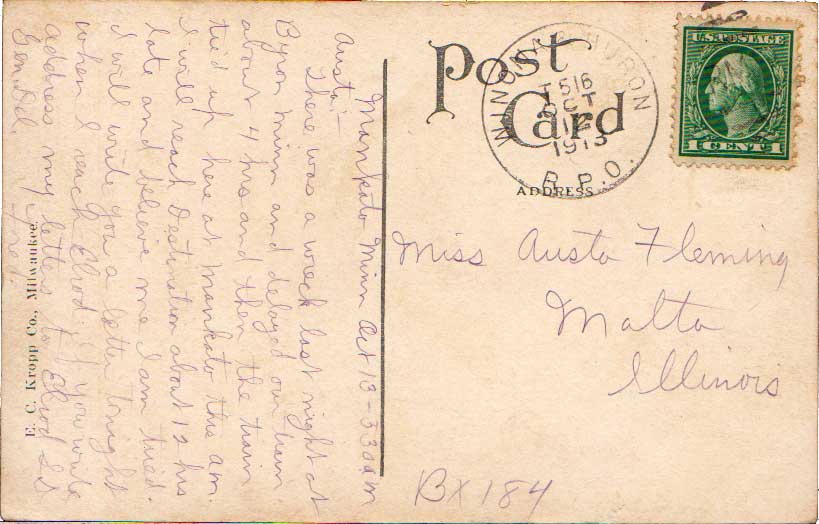 Post
Card
ADDRESS
U.S. POSTAGE
1 CENT 1
WINONA & HURON
T 516
OCT
1913
R.P.O.
Miss Austa Fleming
Malta
Illinois
BX 184
Mankato Minn Oct 13 - 330am
Austa:-
There was a wreck last night at
Byron Minn and delayed our train
about 4 hrs and then the train
tied up here at Mankato this am.
I will reach destination about 12 hrs
late and believe me I am tired.
I will write you a letter tonight
when I reach Elrod. If you write
address my letters to Elrod S.D
Gen. Del.
Fred.
E. C. Kropp Co., Milwaukee